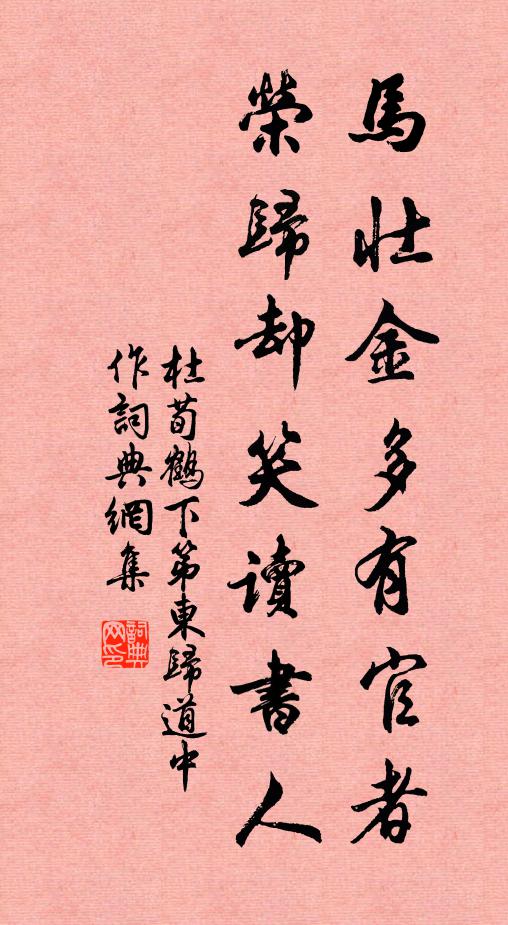 馬壯金多有官者
榮歸却笑讀書人
杜荀鶴下第東歸道中
作詞典網集
詞典網印